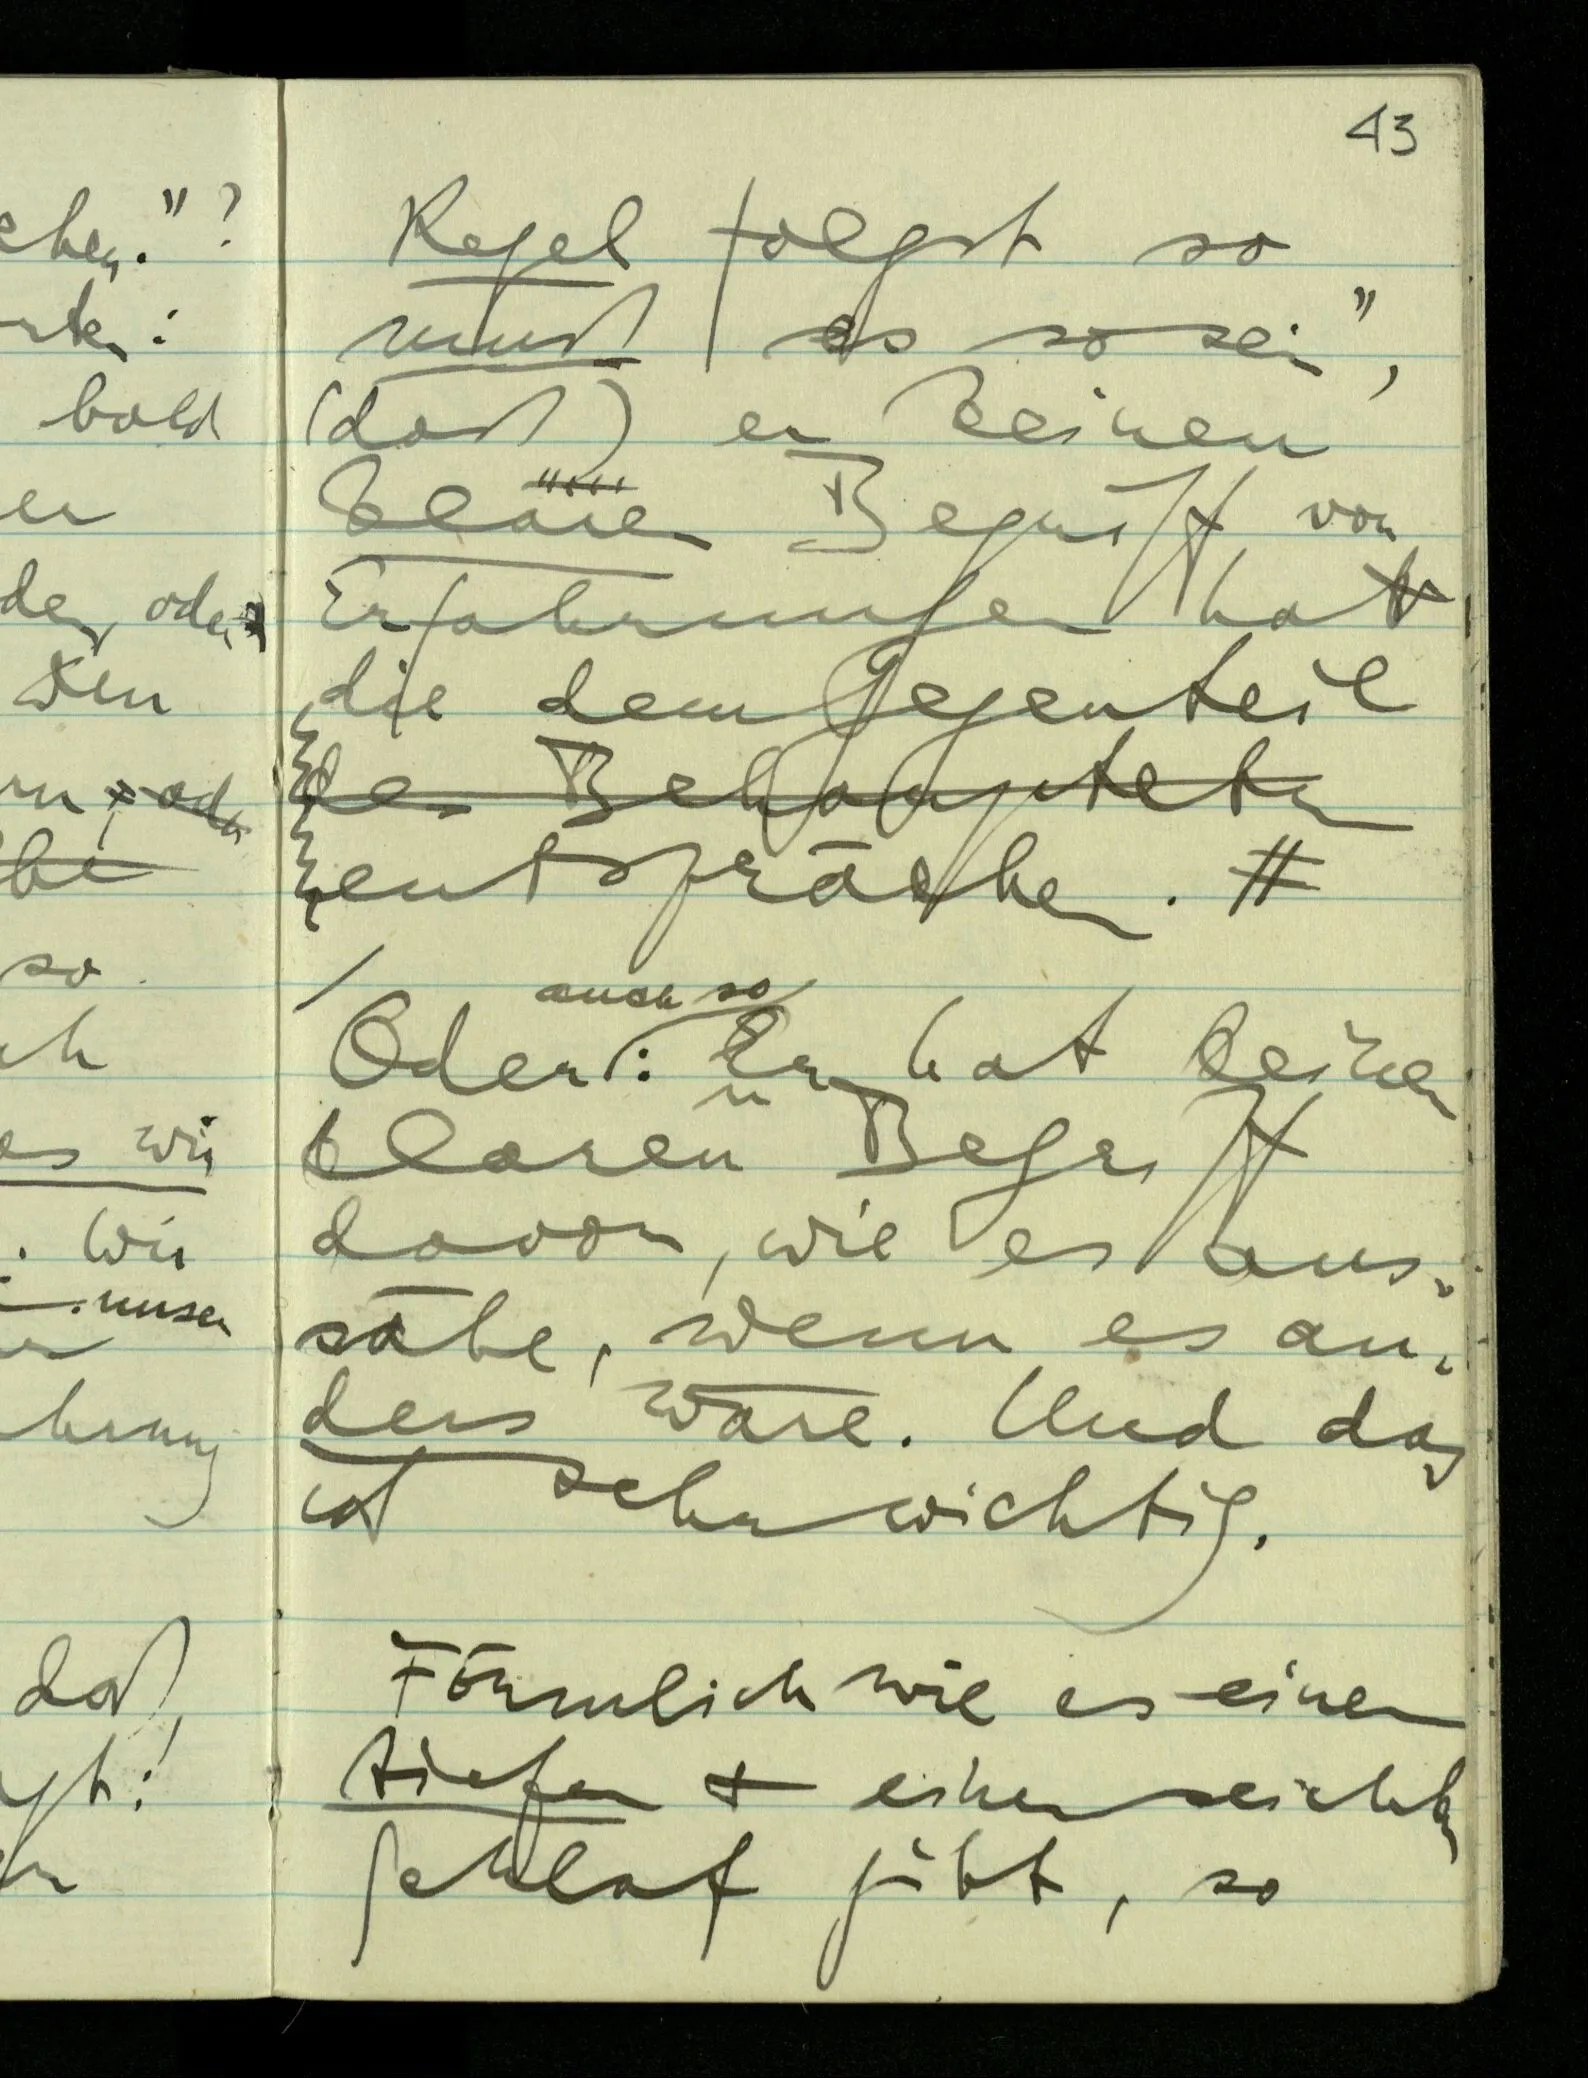 43
chen." ?
Regel folgst so
muß es so sein",
bald
(daß) er keinen
er
klaren Begriff von
den, oder
Erfahrungen hat
den
die dem Gegenteil
des Behaupteten
entsprächen. //
so.
auch so
Oder: Er hat keinen
klaren Begriff
es wie
davon, wie es aus-
. Wir
unser
sähe, wenn es an-
ders wäre. Und das
ist sehr wichtig.
daß,
Förmlich wie es einen
tiefen + einen seichten
Schlaf gibt, so